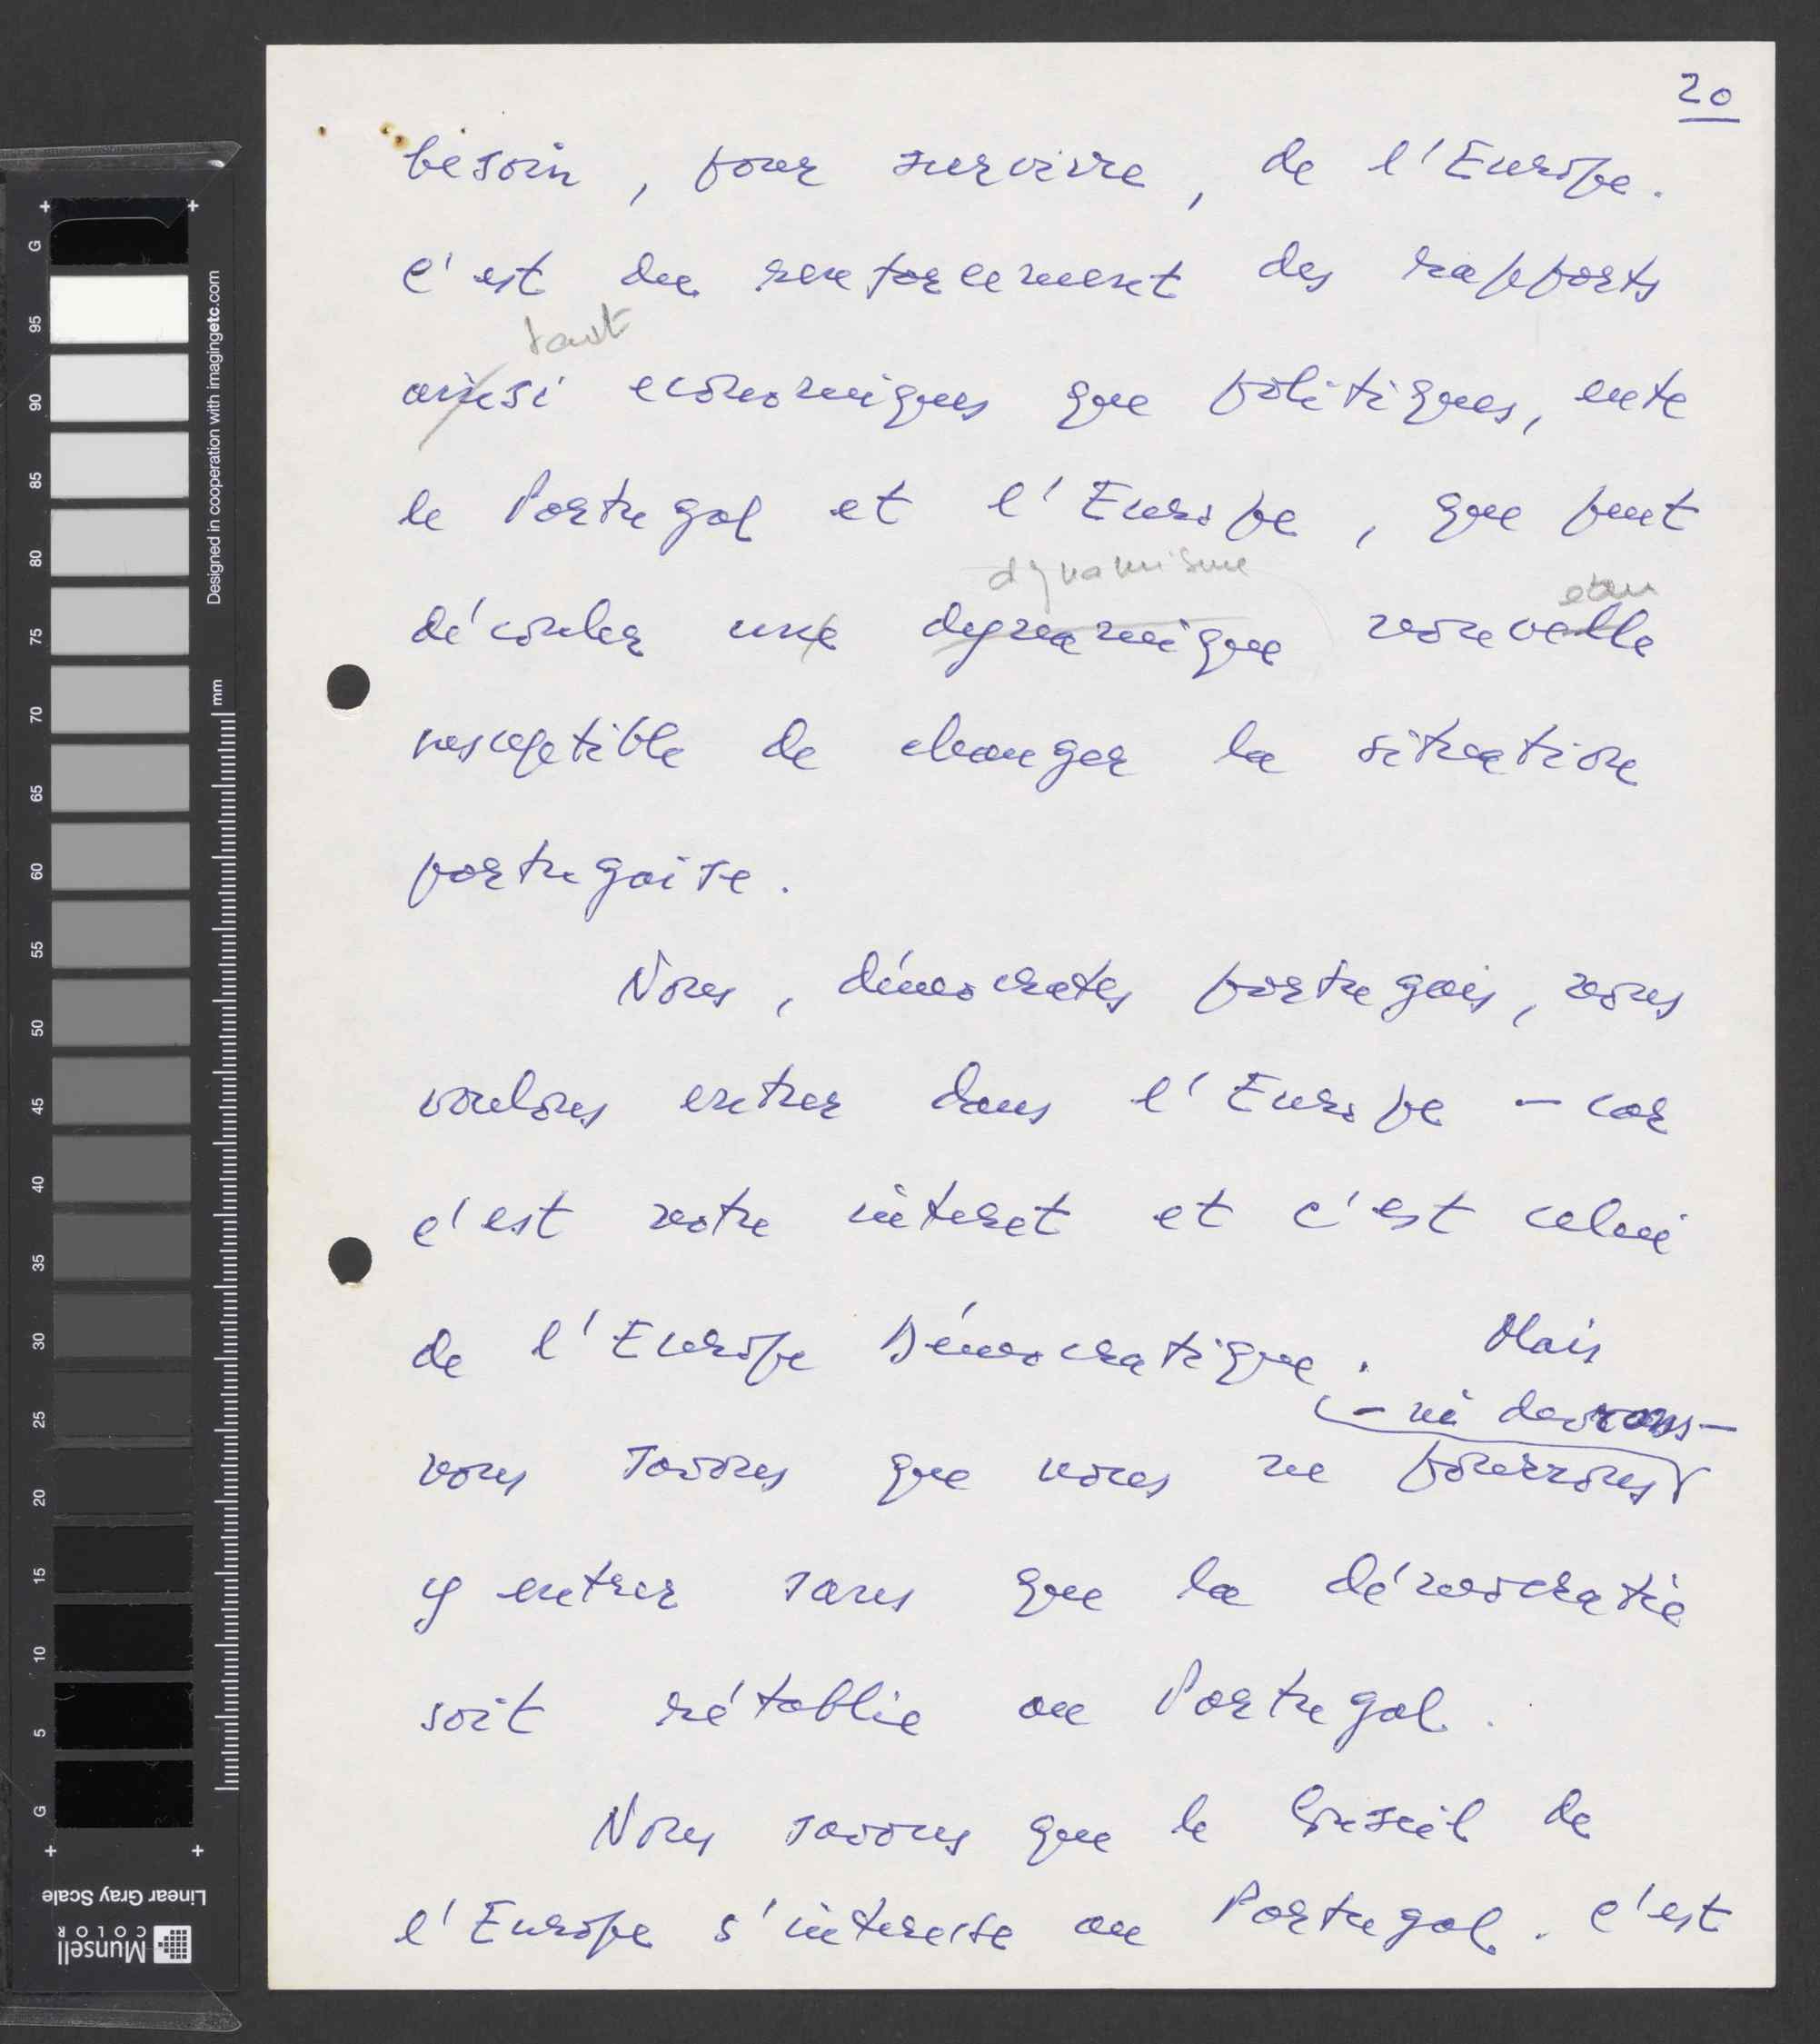 20
besoin, pour survivre, de l'Europe.
c'est du renforcement des rapports
tant
ainsi economiques que politiques, entre
le Portugal et l'Europe, que peut
dynamisme eau
découler une dynamique nouvelle
susceptible de changer la situation
portugaise.
Nous, démocrates portugais, nous
voulons entrer dans l'Europe - car
c'est notre interet et c'est celui
de l'Europe Démocratique. Mais
- ni devrons -
nous savons que nous ne pourrons
y entrer sans que la démocratie
soit rétablie au Portugal.
Nous savons que le Conseil de
l'Europe s'interesse au Portugal. C'est
G 95 90 85 80 75 70 65 60 55 50 45 40 35 30 25 20 15 10 5 G
Designed in cooperation with imagingetc.com
mm
Linear Gray Scale
Munsell
COLOR